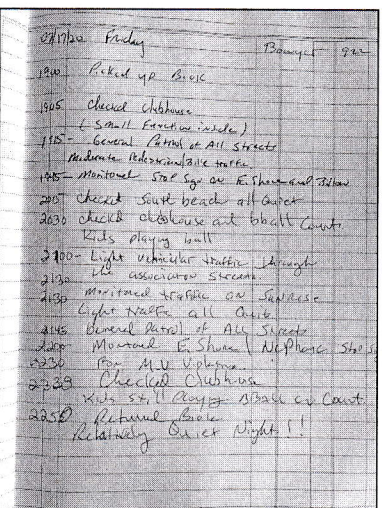 07/17/20 Friday
Bowyer 922
1900 Picked up Book
1905 checked Clubhouse
(Small Function inside)
1915 - General Patrol of All Streets
Moderate Pedestrian/Bike traffic
1945 - Monitored Stop Sign on E. Shore and
2015 checked South beach all Quiet
2030 checked clubhouse and bball Court
Kids playing ball
2100 - Light vehicular traffic through
2130 the association streets.
2130 Monitored traffic on Sunrise
Light traffic all Quite
2145 General Patrol of All Streets
2200 - Monitored E. Shore / Stop
2230 For M.V.
2239 Checked Clubhouse
Kids still playing BBall on Court
2250 Returned Book
Relatively Quiet Night!!